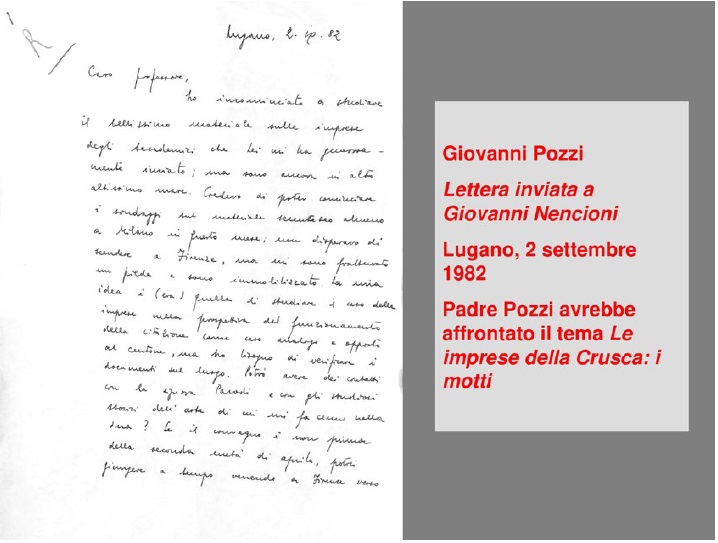 R
Lugano, 2. ix. 82
Caro professore,
ho incominciato a studiare
il bellissimo materiale sulle imprese
degli Accademici che Lei mi ha generosa-
mente inviato; ma sono ancora in alto
altissimo mare. Credevo di poter cominciare
i sondaggi sul materiale secentesco almeno
a Milano in questo mese; non disperavo di
scendere a Firenze, ma mi sono fratturato
un piede e sono immobilizzato. La mia
idea è (era) quella di studiare il caso delle
imprese nella prospettiva del funzionamento
della citazione come caso analogo e opposto
al centone, ma ho bisogno di verificare i
documenti sul luogo. Potrò avere dei contatti
con la Parodi e con gli studiosi
storici dell'arte di cui mi fa cenno nella
Sua? Se il convegno è non prima
della seconda metà di aprile, potrei
giungere a tempo venendo a Firenze verso
Giovanni Pozzi
Lettera inviata a
Giovanni Nencioni
Lugano, 2 settembre
1982
Padre Pozzi avrebbe
affrontato il tema Le
imprese della Crusca: i
motti